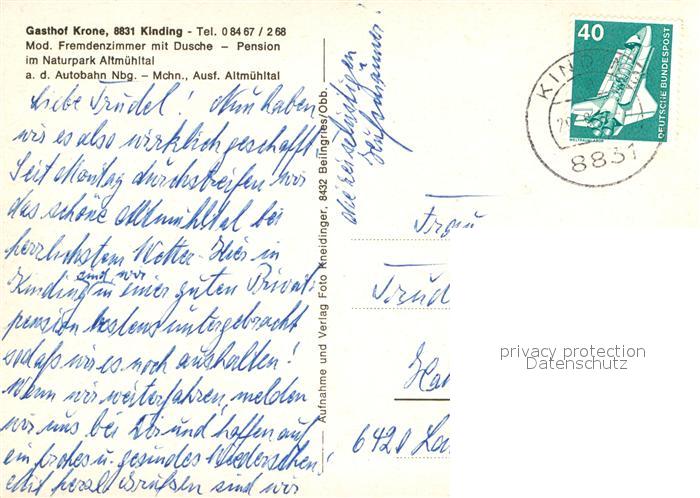 Gasthof Krone, 8831 Kinding - Tel. 0 84 67 / 2 68
Mod. Fremdenzimmer mit Dusche – Pension
im Naturpark Altmühltal
a. d. Autobahn Nbg. – Mchn., Ausf. Altmühltal
Liebe Trudel! Nun haben
wir es also wirklich geschafft.
Seit Montag durchstreifen wir
das schöne Altmühltal bei
herrlichstem Wetter. Hier in
Kinding sind wir in einer guten Privat-
pension bestens untergebracht
sodaß wir es noch aushalten!
Wenn wir weiterfahren, melden
wir uns bei Dir und hoffen auf
ein frohes u. gesundes Wiedersehen!
Mit herzl. Grüßen sind wir
die reiselustigen
Aufnahme und Verlag Foto Kneidinger, 8432 Beilngries/Obb.
40
DEUTSCHE BUNDESPOST
WELTRAUMLABOR
KIND
8831
Frau
Trud
Ha
6420 La
privacy protection
Datenschutz